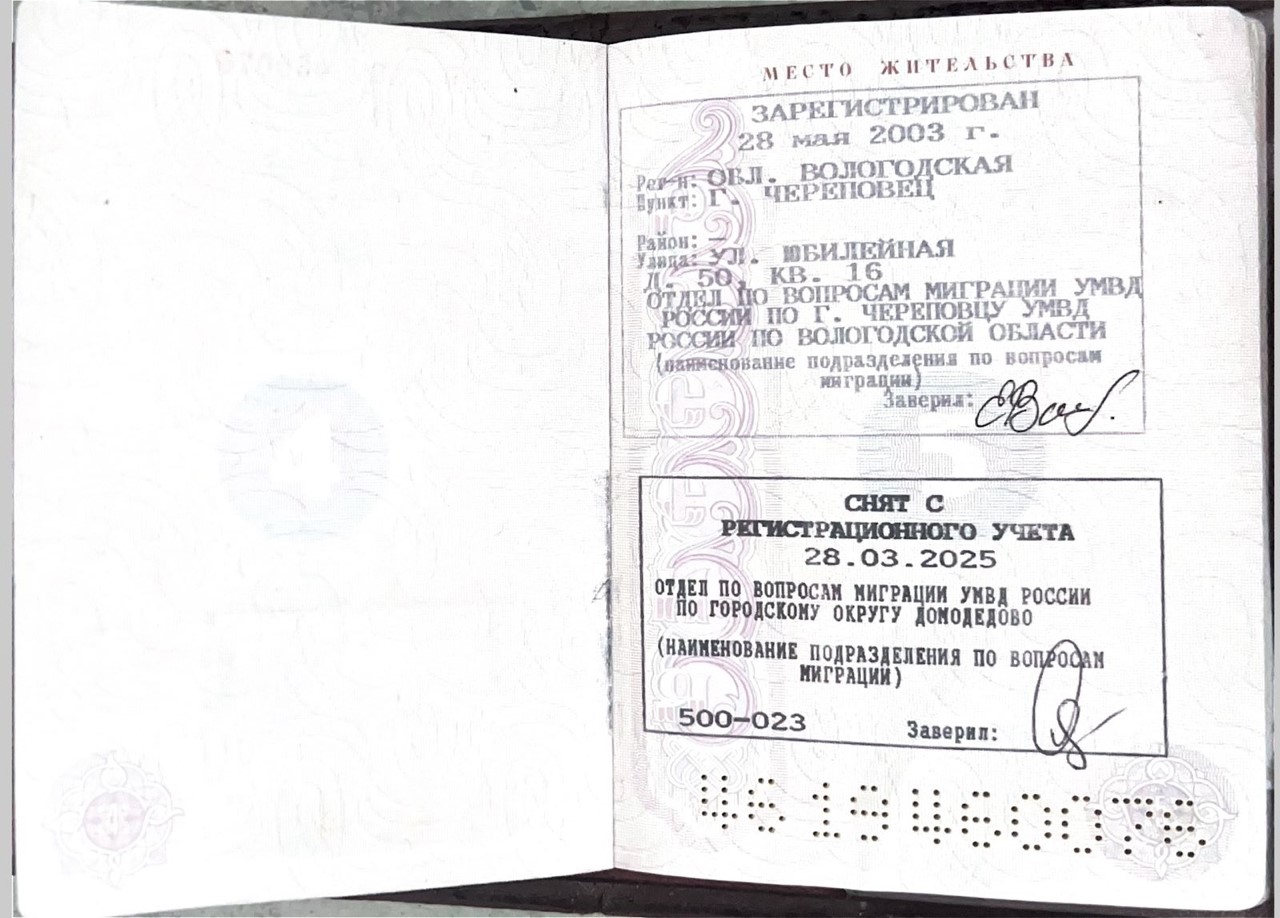 МЕСТО ЖИТЕЛЬСТВА
ЗАРЕГИСТРИРОВАН
28 мая 2003 г.
Рег-н: ОБЛ. ВОЛОГОДСКАЯ
Пункт: Г. ЧЕРЕПОВЕЦ
Район: —
Улица: УЛ. ЮБИЛЕЙНАЯ
Д. 50, КВ. 16
ОТДЕЛ ПО ВОПРОСАМ МИГРАЦИИ УМВД
РОССИИ ПО Г. ЧЕРЕПОВЦУ УМВД
РОССИИ ПО ВОЛОГОДСКОЙ ОБЛАСТИ
(наименование подразделения по вопросам
миграции)
Заверил:
СНЯТ С
РЕГИСТРАЦИОННОГО УЧЕТА
28.03.2025
ОТДЕЛ ПО ВОПРОСАМ МИГРАЦИИ УМВД РОССИИ
ПО ГОРОДСКОМУ ОКРУГУ ДОМОДЕДОВО
(НАИМЕНОВАНИЕ ПОДРАЗДЕЛЕНИЯ ПО ВОПРОСАМ
МИГРАЦИИ)
500-023 Заверил:
46 19